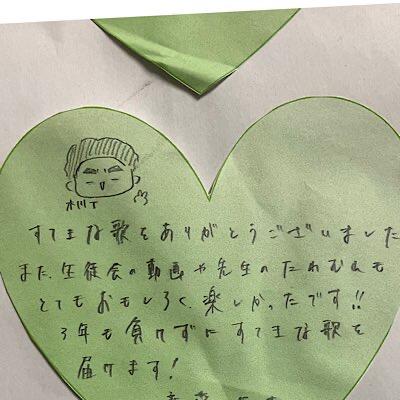 すてきな歌をありがとうございました
また、生徒会の動画や先生のたわむれも
とてもおもしろく、楽しかったです!!
3年も負けずにすてきな歌を
届けます!